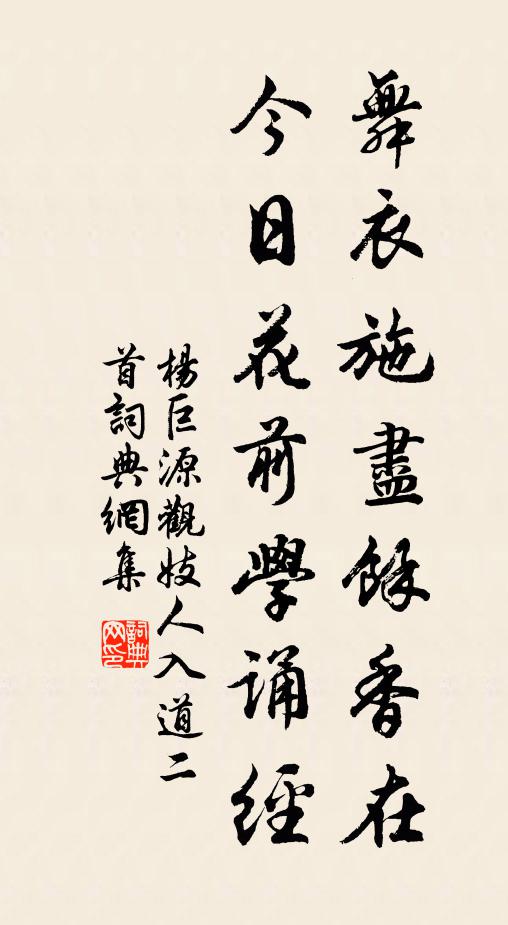 舞衣施盡餘香在
今日花前學誦經
楊巨源觀妓人入道二
首詞典網集
詞典
网印